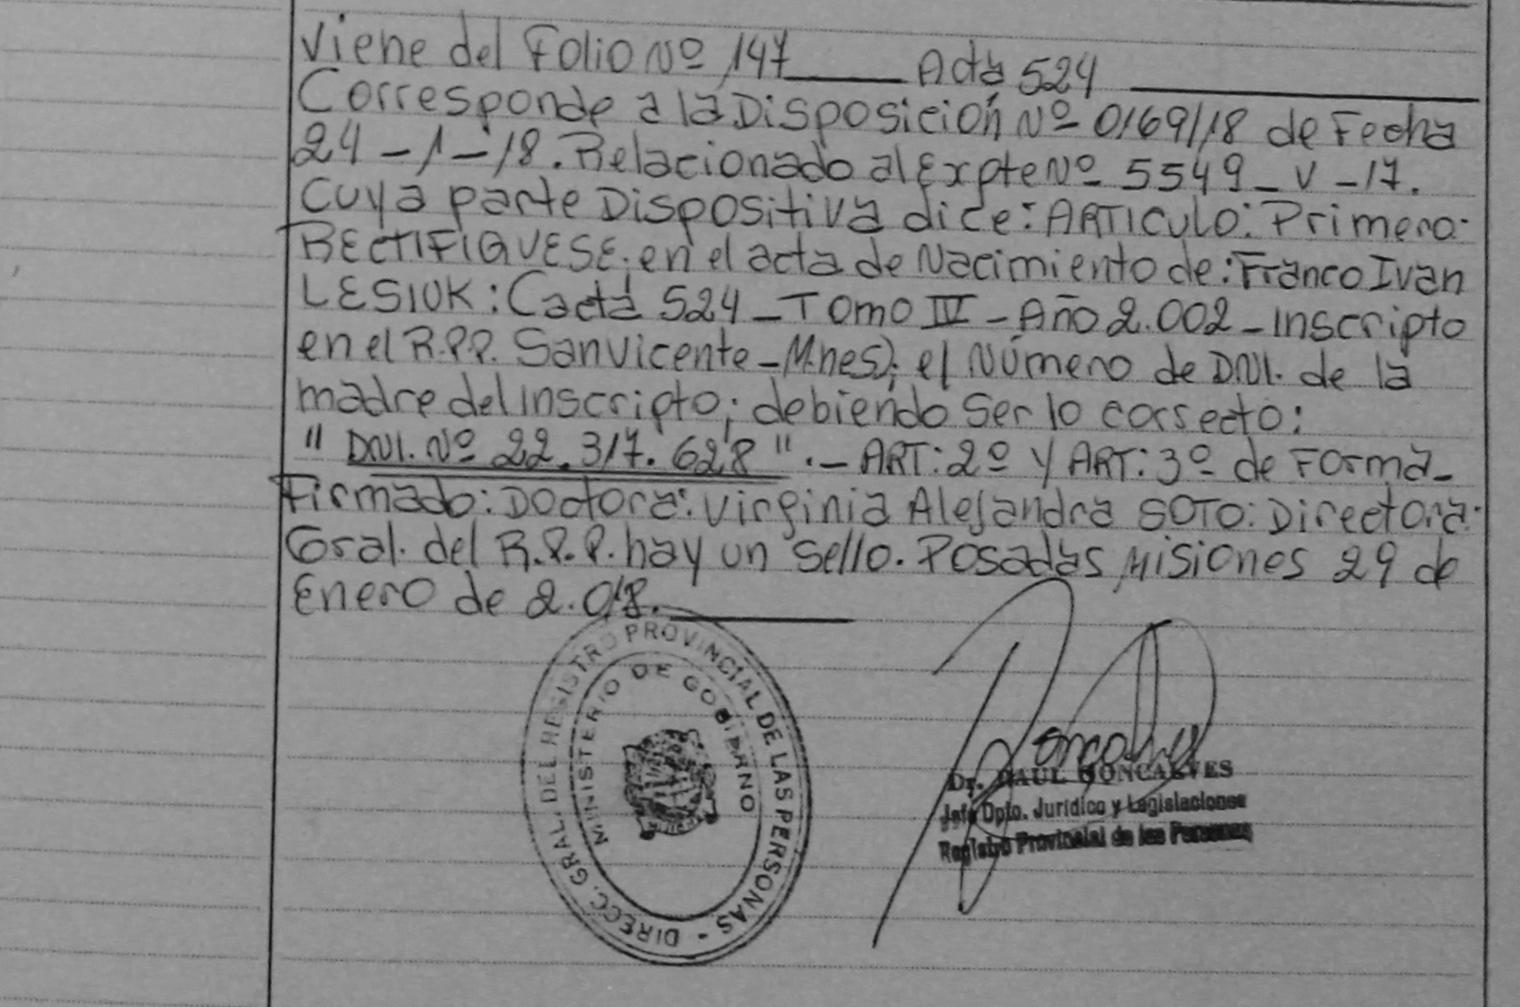 Viene del Folio Nº 147 Acta 524
Corresponde a la Disposición Nº 0169/18 de Fecha
24-1-18. Relacionado al Expte Nº 5549-V-17.
Cuya parte Dispositiva dice: ARTICULO: Primero:
RECTIFIQUESE: en el acta de Nacimiento de: Franco Ivan
LESIUK: (acta 524 - Tomo III - Año 2.002 - Inscripto
en el R.P.P. San Vicente - Mnes); el Número de DNI. de la
madre del inscripto; debiendo Ser lo correcto:
" DNI. Nº 22.317.628 ".- ART: 2º y ART: 3º de Forma-
Firmado: Doctora: Virginia Alejandra SOTO: Directora:
Gral. del R.P.P. hay un Sello. Posadas Misiones 29 de
Enero de 2.018.
DIRECC. GRAL. DEL REGISTRO PROVINCIAL DE LAS PERSONAS -
MINISTERIO DE GOBIERNO
Dr. RAUL GONCALVES
Jefe Dpto. Jurídico y Legislaciones
Registro Provincial de las Personas